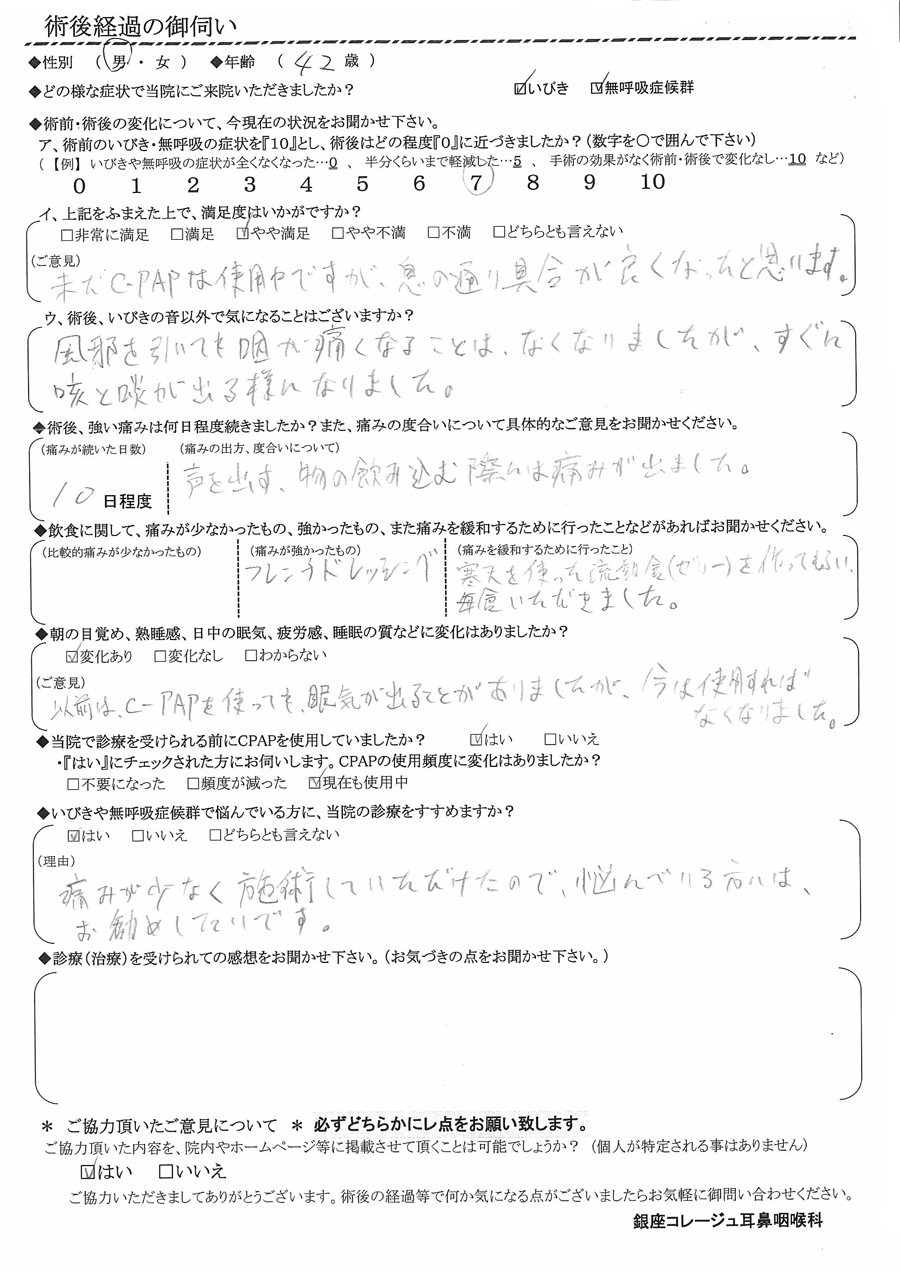 術後経過の御伺い
◆性別 （ 男 ・ 女 ） ◆年齢 （ 42 歳 ）
◆どの様な症状で当院にご来院いただきましたか？ ☑いびき ☑無呼吸症候群
◆術前・術後の変化について、今現在の状況をお聞かせ下さい。
ア、術前のいびき・無呼吸の症状を『10』とし、術後はどの程度『0』に近づきましたか？（数字を〇で囲んで下さい）
（【例】 いびきや無呼吸の症状が全くなくなった…0 、 半分くらいまで軽減した…5 、 手術の効果がなく術前・術後で変化なし…10 など）
0 1 2 3 4 5 6 7 8 9 10
イ、上記をふまえた上で、満足度はいかがですか？
□非常に満足 □満足 ☑やや満足 □やや不満 □不満 □どちらとも言えない
（ご意見）
未だC-PAPは使用中ですが、息の通り具合が良くなったと思います。
ウ、術後、いびきの音以外で気になることはございますか？
風邪を引いても咽が痛くなることは、なくなりましたが、すぐに
咳と啖が出る様になりました。
◆術後、強い痛みは何日程度続きましたか？また、痛みの度合いについて具体的なご意見をお聞かせください。
（痛みが続いた日数） （痛みの出方、度合いについて）
10 日程度 声を出す、物の飲み込む際には痛みが出ました。
◆飲食に関して、痛みが少なかったもの、強かったもの、また痛みを緩和するために行ったことなどがあればお聞かせください。
（比較的痛みが少なかったもの） （痛みが強かったもの） （痛みを緩和するために行ったこと）
フレンチドレッシング 寒天を使った流動食（ゼリー）を作ってもらい、
毎食いただきました。
◆朝の目覚め、熟睡感、日中の眠気、疲労感、睡眠の質などに変化はありましたか？
☑変化あり □変化なし □わからない
（ご意見）
以前は、C-PAPを使っても、眠気が出ることがありましたが、今は使用すれば
なくなりました。
◆当院で診療を受けられる前にCPAPを使用していましたか？ ☑はい □いいえ
・『はい』にチェックされた方にお伺いします。CPAPの使用頻度に変化はありましたか？
□不要になった □頻度が減った ☑現在も使用中
◆いびきや無呼吸症候群で悩んでいる方に、当院の診療をすすめますか？
☑はい □いいえ □どちらとも言えない
（理由）
痛みが少なく施術していただけたので、悩んでいる方には、
お勧めしたいです。
◆診療（治療）を受けられての感想をお聞かせ下さい。（お気づきの点をお聞かせ下さい。）
＊ ご協力頂いたご意見について ＊ 必ずどちらかにレ点をお願い致します。
ご協力頂いた内容を、院内やホームページ等に掲載させて頂くことは可能でしょうか？ （個人が特定される事はありません）
☑はい □いいえ
ご協力いただきましてありがとうございます。術後の経過等で何か気になる点がございましたらお気軽に御問い合わせください。
銀座コレージュ耳鼻咽喉科